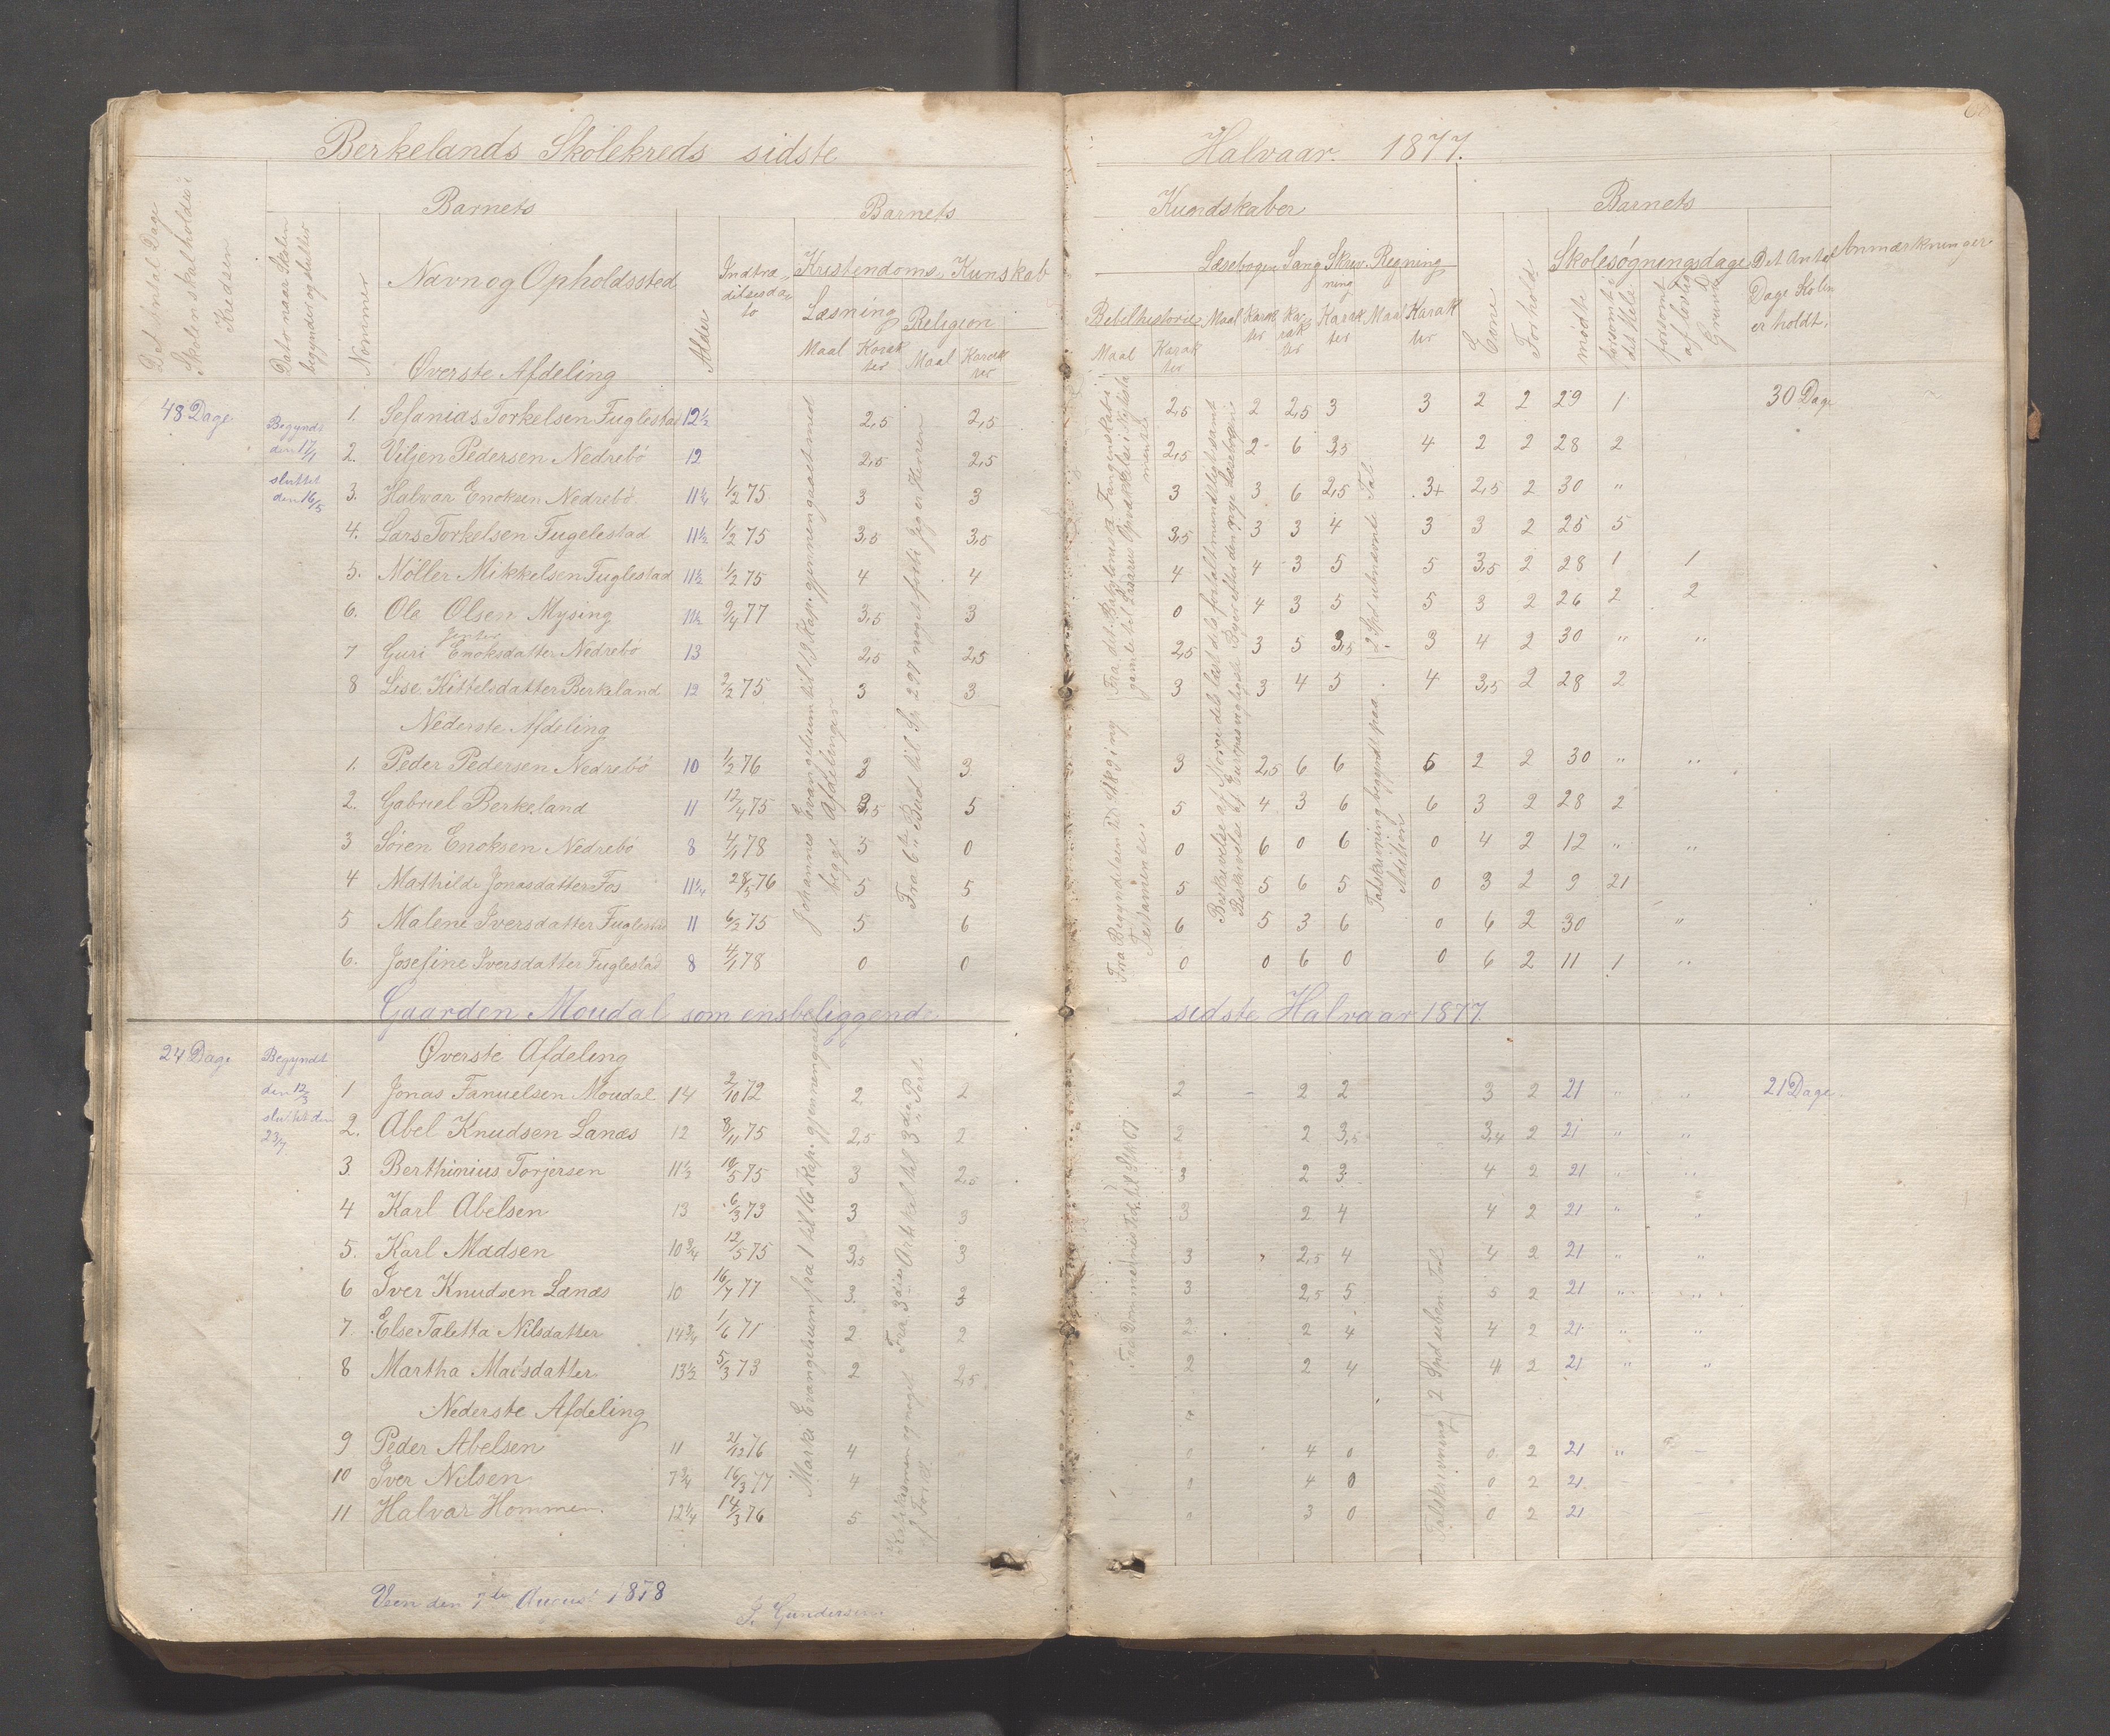 Berkelands Skolekreds sidste Halvaar. 1877.
Det Antal Dage Skolen skal holdes i Kredsen
Dato naar Skolen begynder og slutter
Nommer
Barnets
Navn og Opholdssted
Alder
Indtrædelsesdato
Barnets Kundskaber
Kristendoms Kunskab
Læsning
Maal Karakter
Religion
Maal Karakter
Bibelhistorie
Maal Karakter
Læsebogen
Maal Karakter
Sang
Karakter
Skrivning
Karakter
Regning
Maal Karakter
Barnets
Evne
Forhold
Skolesøgningsdage
mødte
forsømt i det Hele
forsømt af lovlig Grund
Det Antal Dage Skolen er holdt.
Anmærkninger
Øverste Afdeling
48 Dage
Begyndt den 17/1
sluttet den 16/5
1. Sefanias Torkelsen Fuglestad 12½ 2,5 2,5 2,5 2 2,5 3 3 2 2 29 1 30 Dage
2. Viljen Pedersen Nedrebö 12 2,5 2,5 2,5 2 6 3,5 4 2 2 28 2
3. Halvar Enoksen Nedrebö 11¼ ½ 75 3 3 3 3 6 2,5 3+ 2,5 2 30 "
4. Lars Torkelsen Fugelestad 11½ ½ 75 3,5 3,5 3,5 3 3 4 3 3 2 25 5
5. Møller Mikkelsen Fuglestad 11½ ½ 75 4 4 4 4 3 5 5 3,5 2 28 1 1
6. Ole Olsen Mysing 11½ 9/4 77 3,5 3 0 4 3 5 5 3 2 26 2 2
Jenter
7 Guri Enoksdatter Nedrebö 13 2,5 2,5 2,5 3 5 3,5 3 4 2 30 " "
8 Lise Kittelsdatter Berkeland 12 2/2 75 3 3 3 3 4 5 4 3,5 2 28 2
Nederste Afdeling
1. Peder Pedersen Nedrebö 10 ½ 76 3 3 3 2,5 6 6 6 2 2 30 " "
2. Gabriel Berkeland 11 12/4 75 3,5 5 5 4 3 6 6 3 2 28 2
3 Søren Enoksen Nedrebö 8 4/1 78 5 0 0 6 0 6 0 4 2 12 " "
4 Mathilde Jonasdatter Fos 11¼ 28/5 76 5 5 5 5 6 5 0 3 2 9 21
5 Malene Iversdatter Fuglestad 11 6/2 75 5 6 6 5 3 6 0 6 2 30 "
6. Josefine Iversdatter Fuglestad 8 4/1 78 0 0 0 0 6 0 0 6 2 11 1 "
Johannes Evangelium til 19 Kap. gjennemgaaet med begge Afdelinger
Fra 6te Bud til Sp. 297 noget forbi Jeg er Herren
Fra det Babyloniske Fangenskab i gamle til Lasarus Opvækkelse i Nye Testamente
Fra Begyndelsen til
Testamente
Beskrivelse af Norge dels læst dels fortalt mundtligt samt
Beskrivelse af Europas vigtigste Byer efter den nye Læsebog
2 Spd ubenævnte Tal
Talskrivning begyndt paa Adition
Gaarden Moudal som ensbeliggende sidste Halvaar 1877.
Øverste Afdeling
24 Dage
Begyndt den 12/3
sluttet den 23/7
1 Jonas Fanuelsen Moudal 14 2/10 72 2 2 2 - 2 2 3 2 21 " " 21 Dage.
2. Abel Knudsen Lanæs 12 8/11 75 2,5 2 2 2 3,5 3,4 2 21 " "
3 Berthinius Torjersen 11½ 19/5 75 3 2,5 3 2 3 4 2 21 " "
4 Karl Abelsen 13 6/3 73 3 3 3 2 4 4 2 21 " "
5. Karl Madsen 10¾ 12/5 75 3,5 3 3 2,5 4 4 2 21 " "
6 Iver Knudsen Lanæs 10 16/7 77 3 3 3 2,5 5 5 2 21 " "
7. Else Taletta Nilsdatter 14¾ 1/6 71 2 2 2 2 4 4 2 21 " "
8 Martha Madsdatter 13½ 5/3 73 2 2,5 2 2 4 4 2 21 " "
Nederste Afdeling
9 Peder Abelsen 11 21/12 76 4 0 4 0 0 2 21 " -
10 Iver Nilsen 7¾ 16/3 77 4 0 4 0 0 2 21
11 Halvar Hommen. 12¼ 14/3 76 5 0 3 0 0 2 21 -
Marks Evangelium fra 1 til 16 Kap. gjennemgaaet
Fra 3die Artikel til 3die Part.
Katekismen og noget af Forkl.
Fra Dommernes Tid til Sp. 67
Talskrivning
2 Spd uben. Tal
Veen den 7de August 1878
J. Gundersen